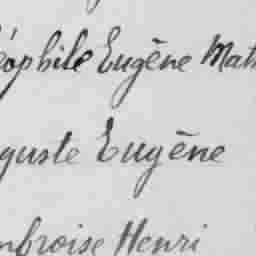 éophile Eugène Mat
guste Eugène
mbroise Henri